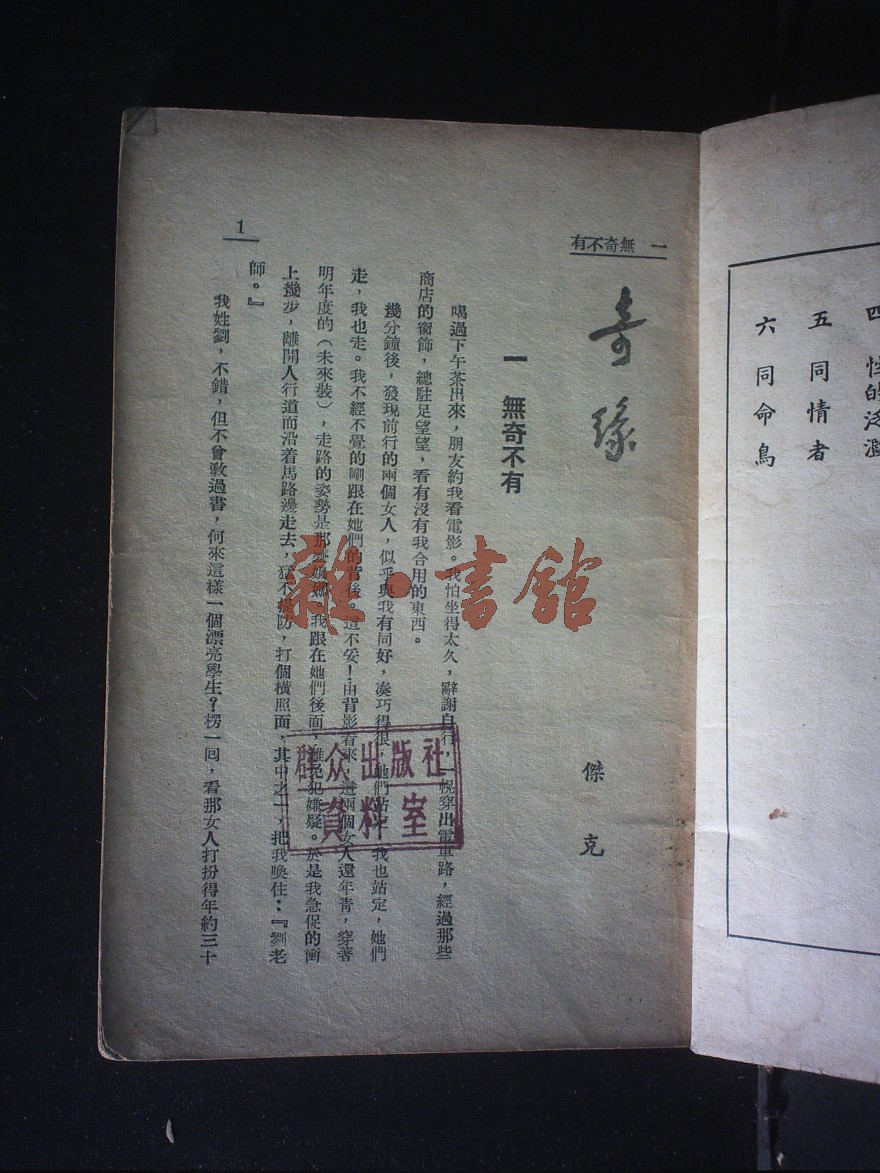 四 性的泛濫
五 同情者
六 同命鳥
一 無奇不有
奇緣
傑克
一 無奇不有
喝過下午茶出來，朋友約我看電影。我怕坐得太久，辭謝自行，一幌穿出電車路，經過那些
商店的窗飾，總駐足望望，看有沒有我合用的東西。
幾分鐘後，發現前行的兩個女人，似乎與我有同好，湊巧得很，她們站定，我也站定，她們
走，我也走。我不經不覺的剛跟在她們的背後。這不妥！由背影看來，這兩個女人還年青，穿著
明年度的（未來裝），走路的姿勢是那麼嬝娜，我跟在她們後面，難免犯嫌疑。於是我急促的衝
上幾步，離開人行道而沿着馬路邊走去，猛不提防，打個橫照面，其中之一，把我喚住：『劉老
師。』
我姓劉，不錯，但不曾教過書，何來這樣一個漂亮學生？楞一囘，看那女人打扮得年約三十
1
雜·書館
群众出版社
資料室